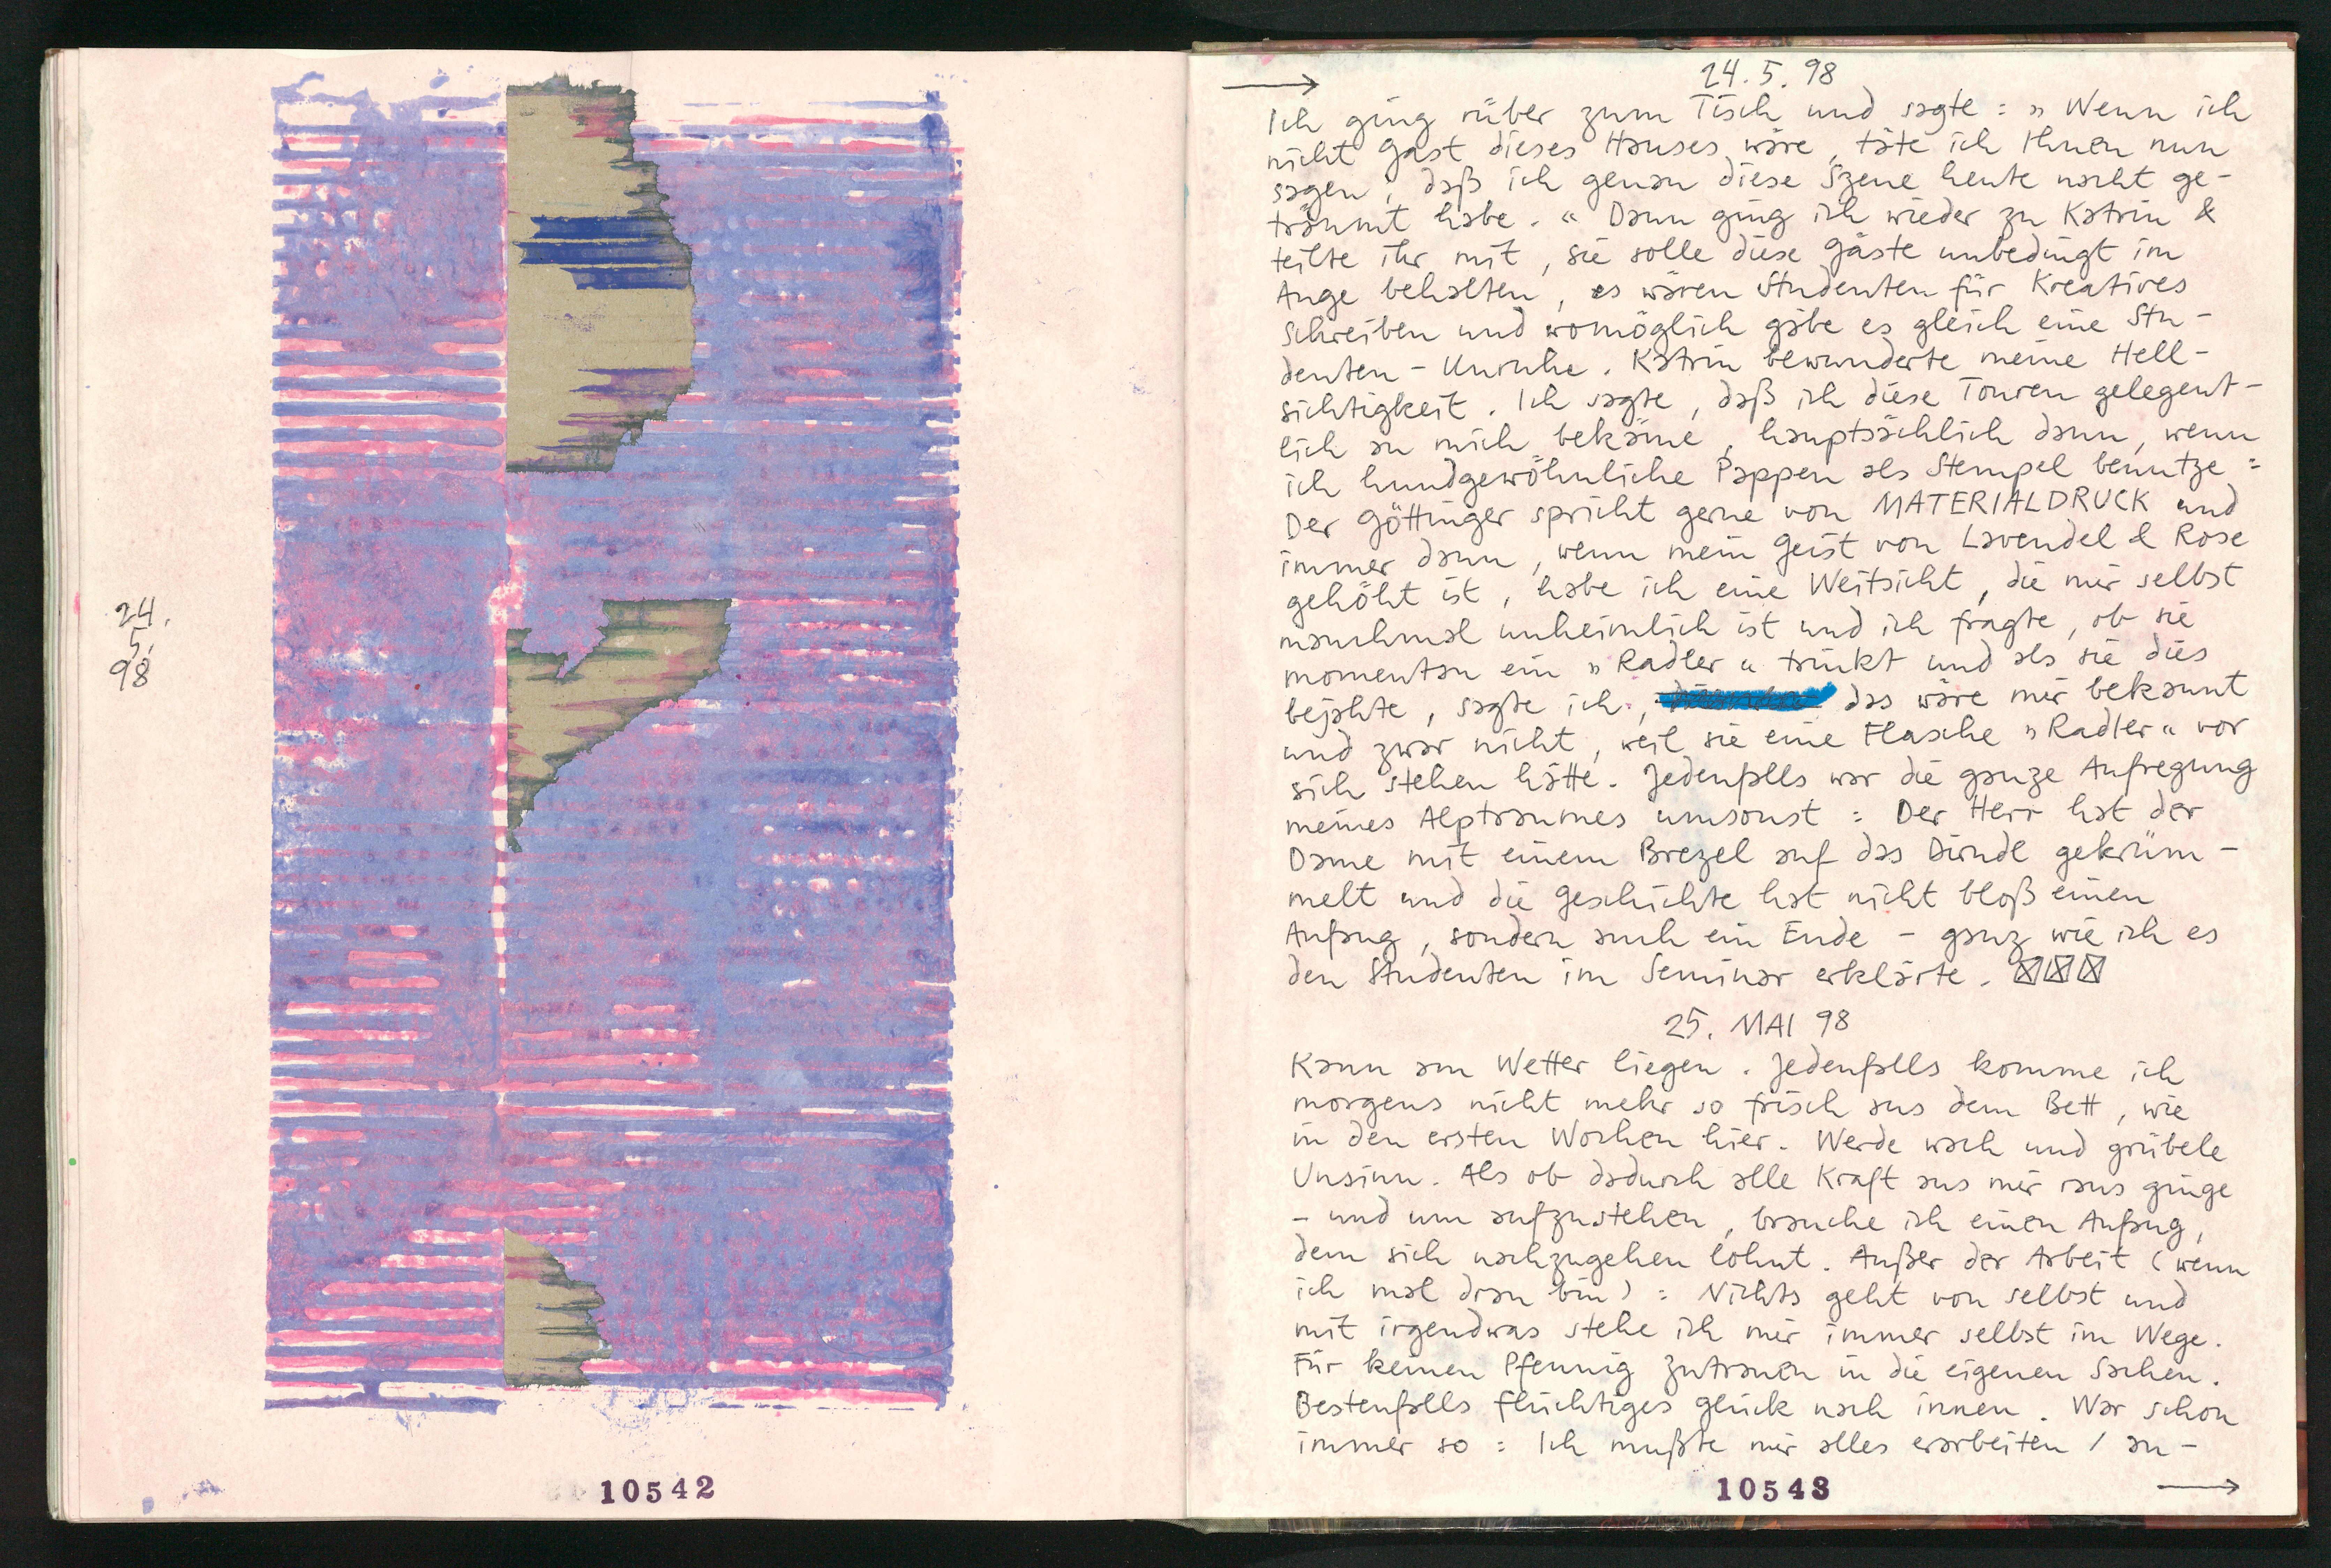 24.
5.
98
10542
24.5.98
Ich ging rüber zum Tisch und sagte: » Wenn ich
nicht Gast dieses Hauses wäre, täte ich Ihnen nun
sagen, daß ich genau diese Szene heute nacht ge-
träumt habe. « Dann ging ich wieder zu Katrin &
teilte ihr mit, sie solle diese Gäste unbedingt im
Auge behalten, es wären Studenten für Kreatives
Schreiben und womöglich gäbe es gleich eine Stu-
denten-Unruhe. Katrin bewunderte meine Hell-
sichtigkeit. Ich sagte, daß ich diese Touren gelegent-
lich an mich bekäme, hauptsächlich dann, wenn
ich hundgewöhnliche Pappen als Stempel benutze:
Der Göttinger spricht gerne von MATERIALDRUCK und
immer dann, wenn mein Geist von Lavendel & Rose
gehöht ist, habe ich eine Weitsicht, die mir selbst
manchmal unheimlich ist und ich fragte, ob sie
momentan ein » Radler « trinkt und als sie dies
bejahte, sagte ich, das wäre mir bekannt
und zwar nicht, weil sie eine Flasche » Radler « vor
sich stehen hätte. Jedenfalls war die ganze Aufregung
meines Alptraumes umsonst: Der Herr hat der
Dame mit einem Brezel auf das Dirndl gekrüm-
melt und die Geschichte hat nicht bloß einen
Anfang, sondern auch ein Ende – ganz wie ich es
den Studenten im Seminar erklärte.
25. MAI 98
Kann am Wetter liegen. Jedenfalls komme ich
morgens nicht mehr so frisch aus dem Bett, wie
in den ersten Wochen hier. Werde wach und grübele
Unsinn. Als ob dadurch alle Kraft aus mir raus ginge
– und um aufzustehen, brauche ich einen Anfang,
dem sich nachzugehen lohnt. Außer der Arbeit (wenn
ich mal dran bin): Nichts geht von selbst und
mit irgendwas stehe ich mir immer selbst im Wege.
Für keinen Pfennig Zutrauen in die eigenen Sachen.
Bestenfalls flüchtiges Glück nach innen. War schon
immer so: Ich mußte mir alles erarbeiten / an-
10543